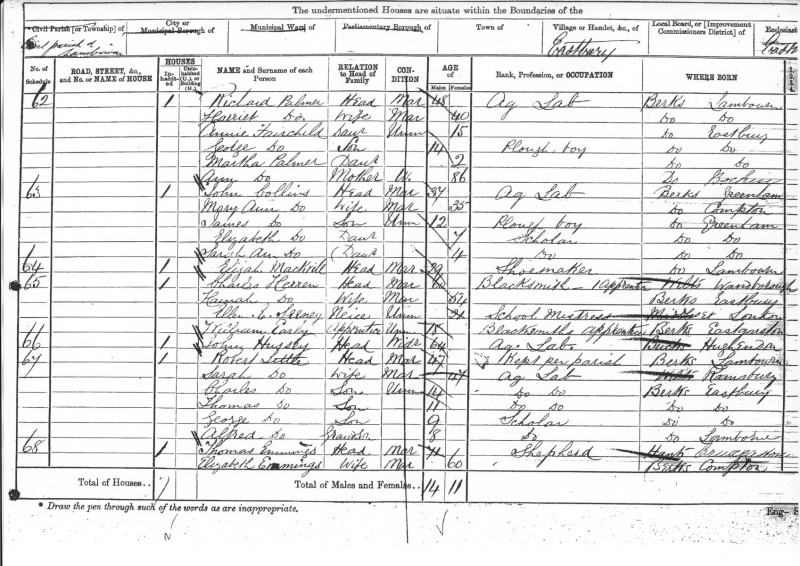 The undermentioned Houses are situate within the Boundaries of the
Civil Parish [or Township] of
City or Municipal Borough of
Municipal Ward of
Parliamentary Borough of
Town of
Village or Hamlet, &c., of
Local Board, or [Improvement Commissioners District] of
Ecclesiast
Eastbury
No. of Schedule
ROAD, STREET, &c., and No. or NAME of HOUSE
HOUSES
Inhabited
Uninhabited (U.), or Building (B.)
NAME and Surname of each Person
RELATION to Head of Family
CONDITION
AGE of
Males
Females
Rank, Profession, or OCCUPATION
WHERE BORN
62 1 Richard Palmer Head Mar 48 Ag Lab Berks Lambourn
Harriet Do Wife Mar 40 Do Do
Annie Fairchild Daur Unm 15 Do Eastbury
George Do Son 14 Plough boy Do Do
Martha Palmer Daur 2 Do Do
Ann Do Mother W. 86 Do
63 1 John Collins Head Mar 37 Ag Lab Berks Greenham
Mary Ann Do Wife Mar 35 Do Compton
James Do Son Unm 12 Plough boy Do Greenham
Elizabeth Do Daur 7 Scholar Do Do
Sarah Ann Do Daur 4 Do Do Do
64 1 Elijah Head Mar 29 Shoemaker Do Lambourn
65 1 Charles Herren Head Mar 60 Blacksmith - 1 apprentice Wilts Wanborough
Hannah Do Wife Mar 54 Berks Eastbury
Ellen E. Neice Unm 21 School Mistress London
William Early Apprentice Unm 18 Blacksmiths apprentice Berks Eastgarston
66 1 Hussey Head Widr 64 Ag Lab Bucks Hughendon
67 1 Robert Little Head Mar 47 per parish Berks Lambourn
Sarah Do Wife Mar 47 Ag Lab Wilts Ramsbury
Charles Do Son Unm 14 " Do Berks Eastbury
Thomas Do Son 11 Do Do Do Do
George Do Son 9 Scholar Do Do
Alfred Do Grandson 8 Do Do Lambourne
68 1 Thomas Emmings Head Mar Shepherd Hants
Elizabeth Emmings Wife Mar 60 Berks Compton
Total of Houses... 7
Total of Males and Females... 14 11
* Draw the pen through such of the words as are inappropriate.
Eng-